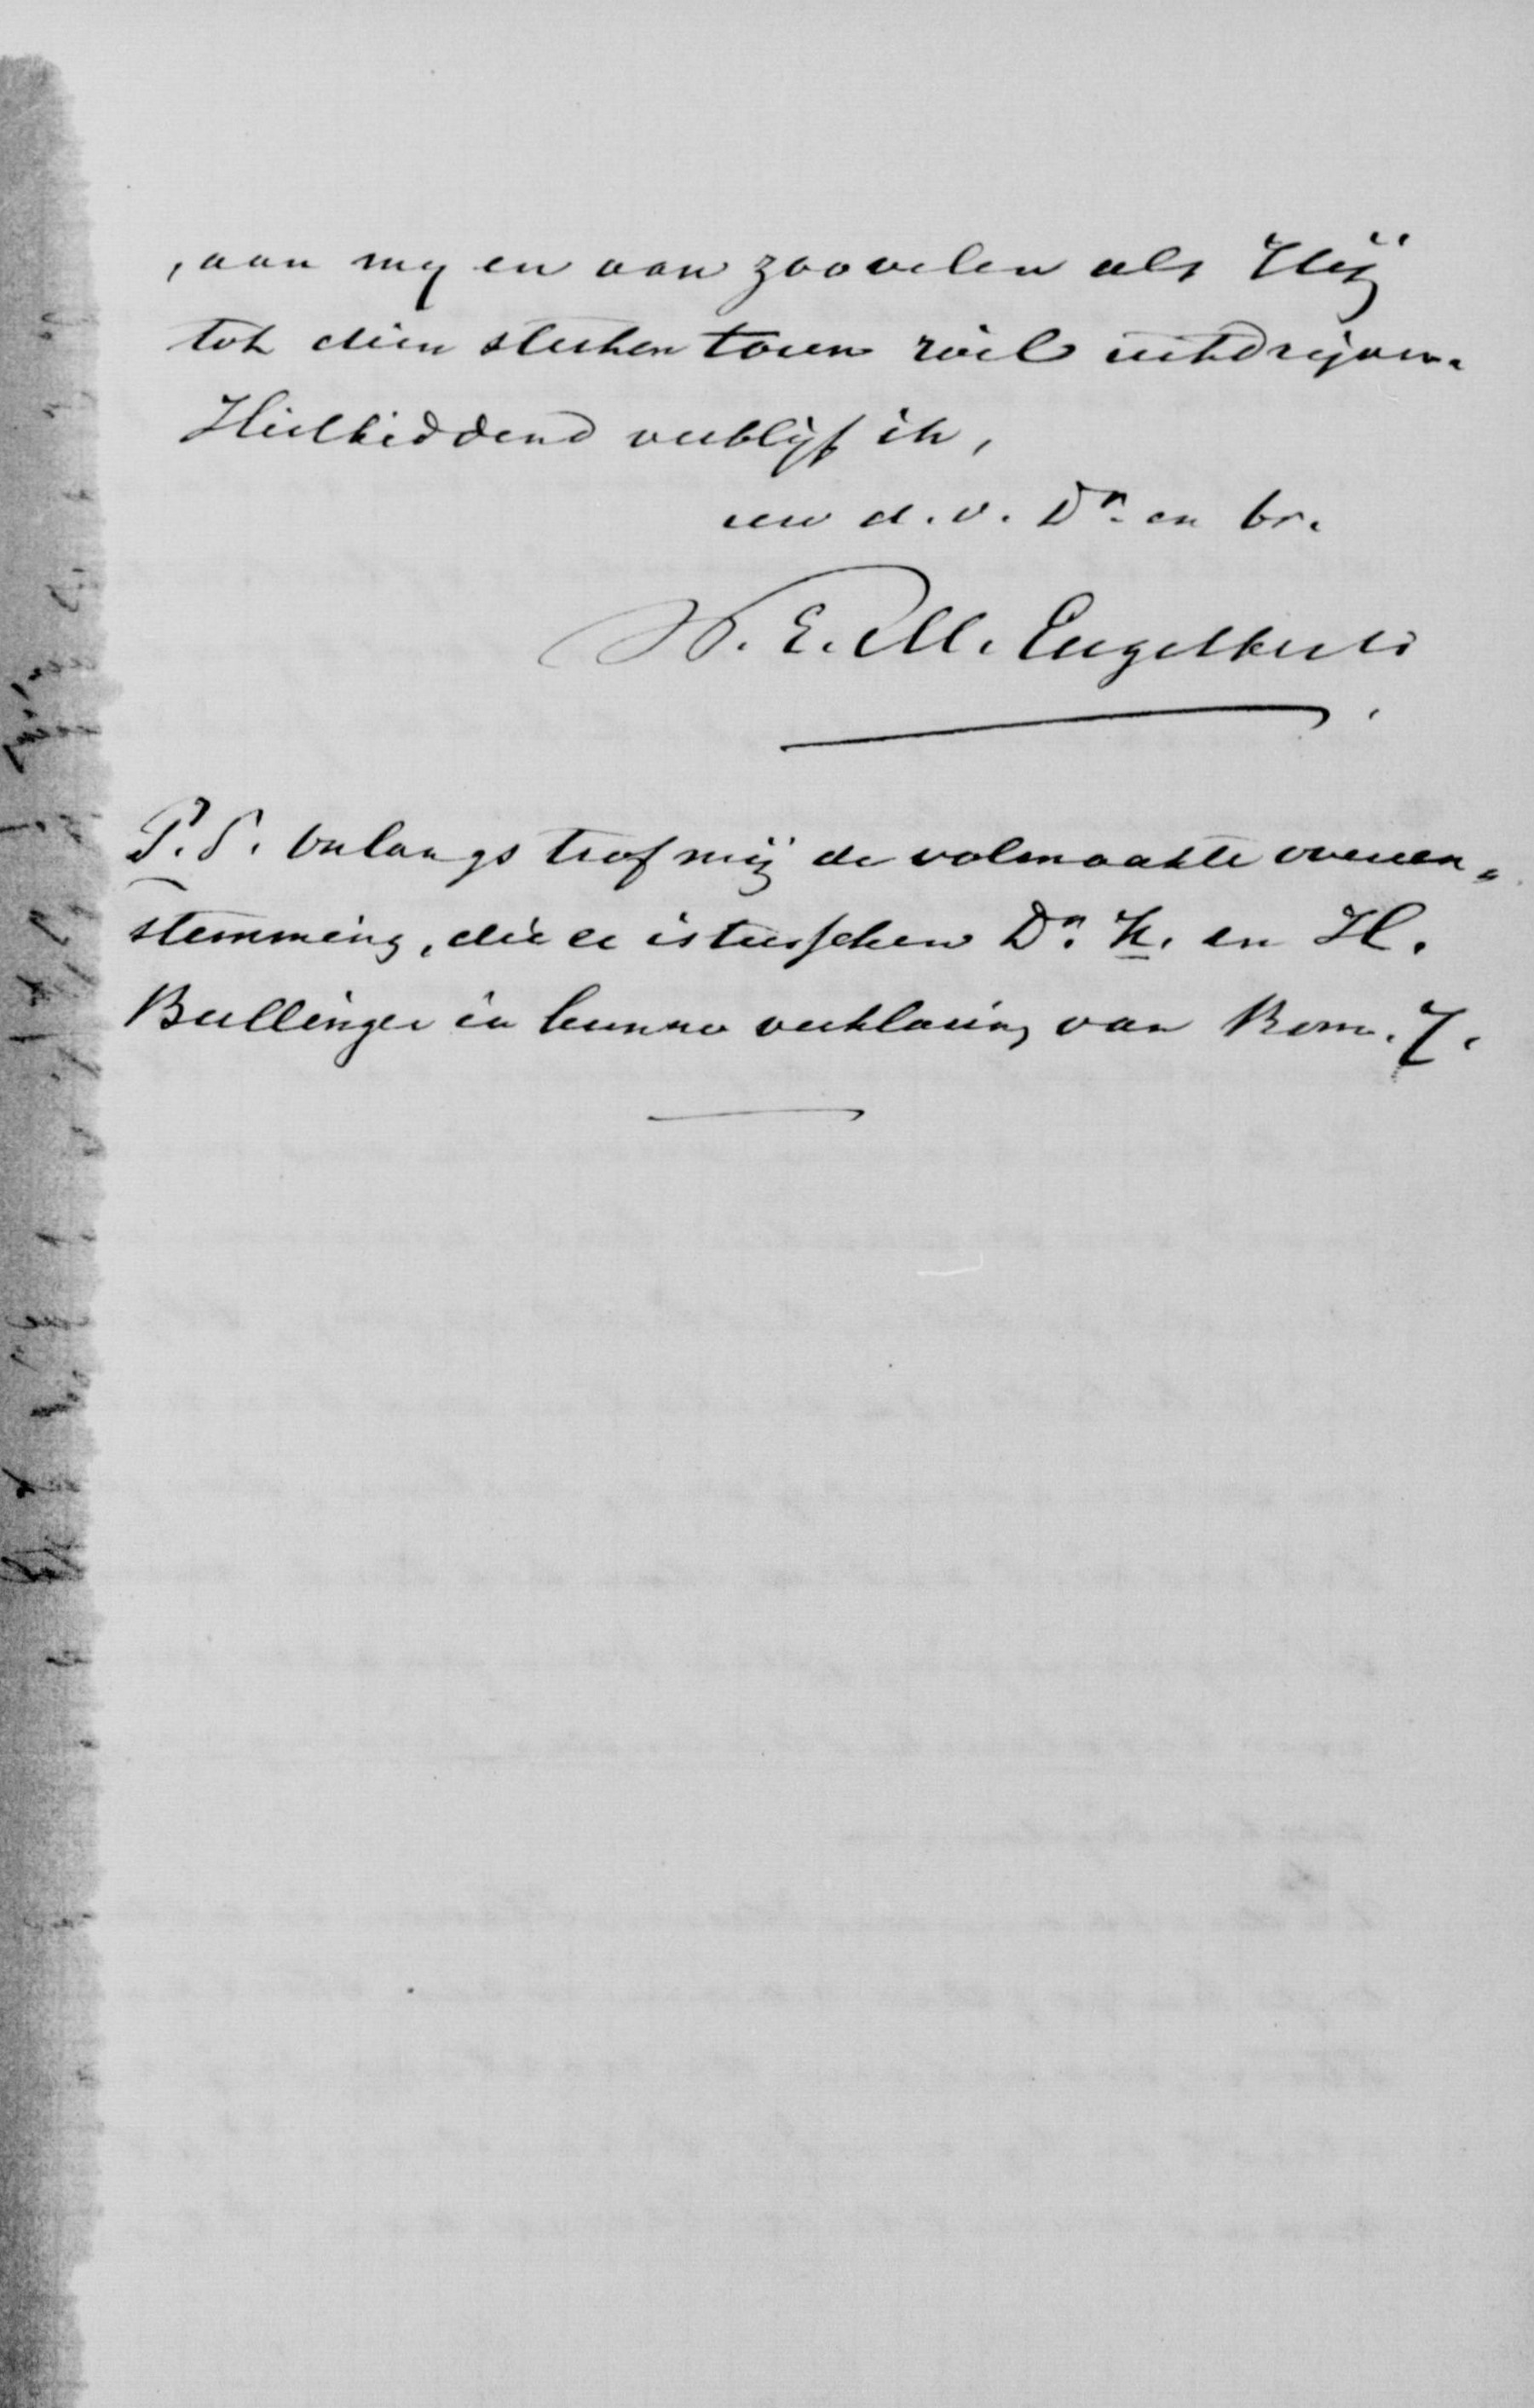 , aan my en aan zoovelen als Hij
tot dien sterken toren wil uitdrijven.
Heilbiddend verblijf ik,
uw d. v. Dr. en br.
W. E. M. Engelberts
P. S. onlangs trof mij de volmaakte overeen„
stemming, die er is tusschen Dr. K. en H.
Bullinger in hunne verklaring van Rom. 7.